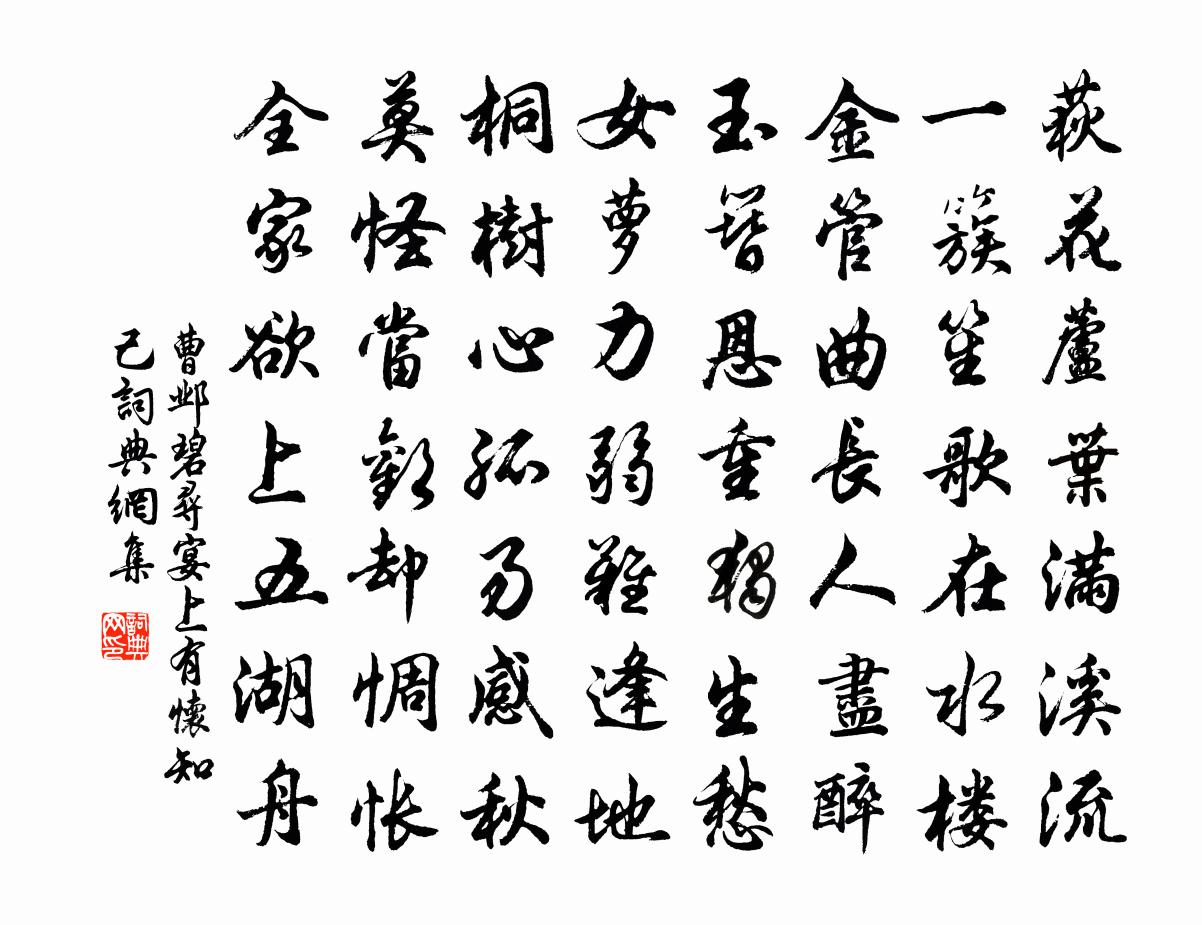 荻花蘆葉滿溪流
一簇笙歌在水楼
金管曲長人盡醉
玉簪恩重獨生愁
女萝力弱難逢地
桐樹心孤易感秋
莫怪當歡却惆怅
全家欲上五湖舟
曹邺碧尋宴上有懷知
己詞典網集
詞典
网印